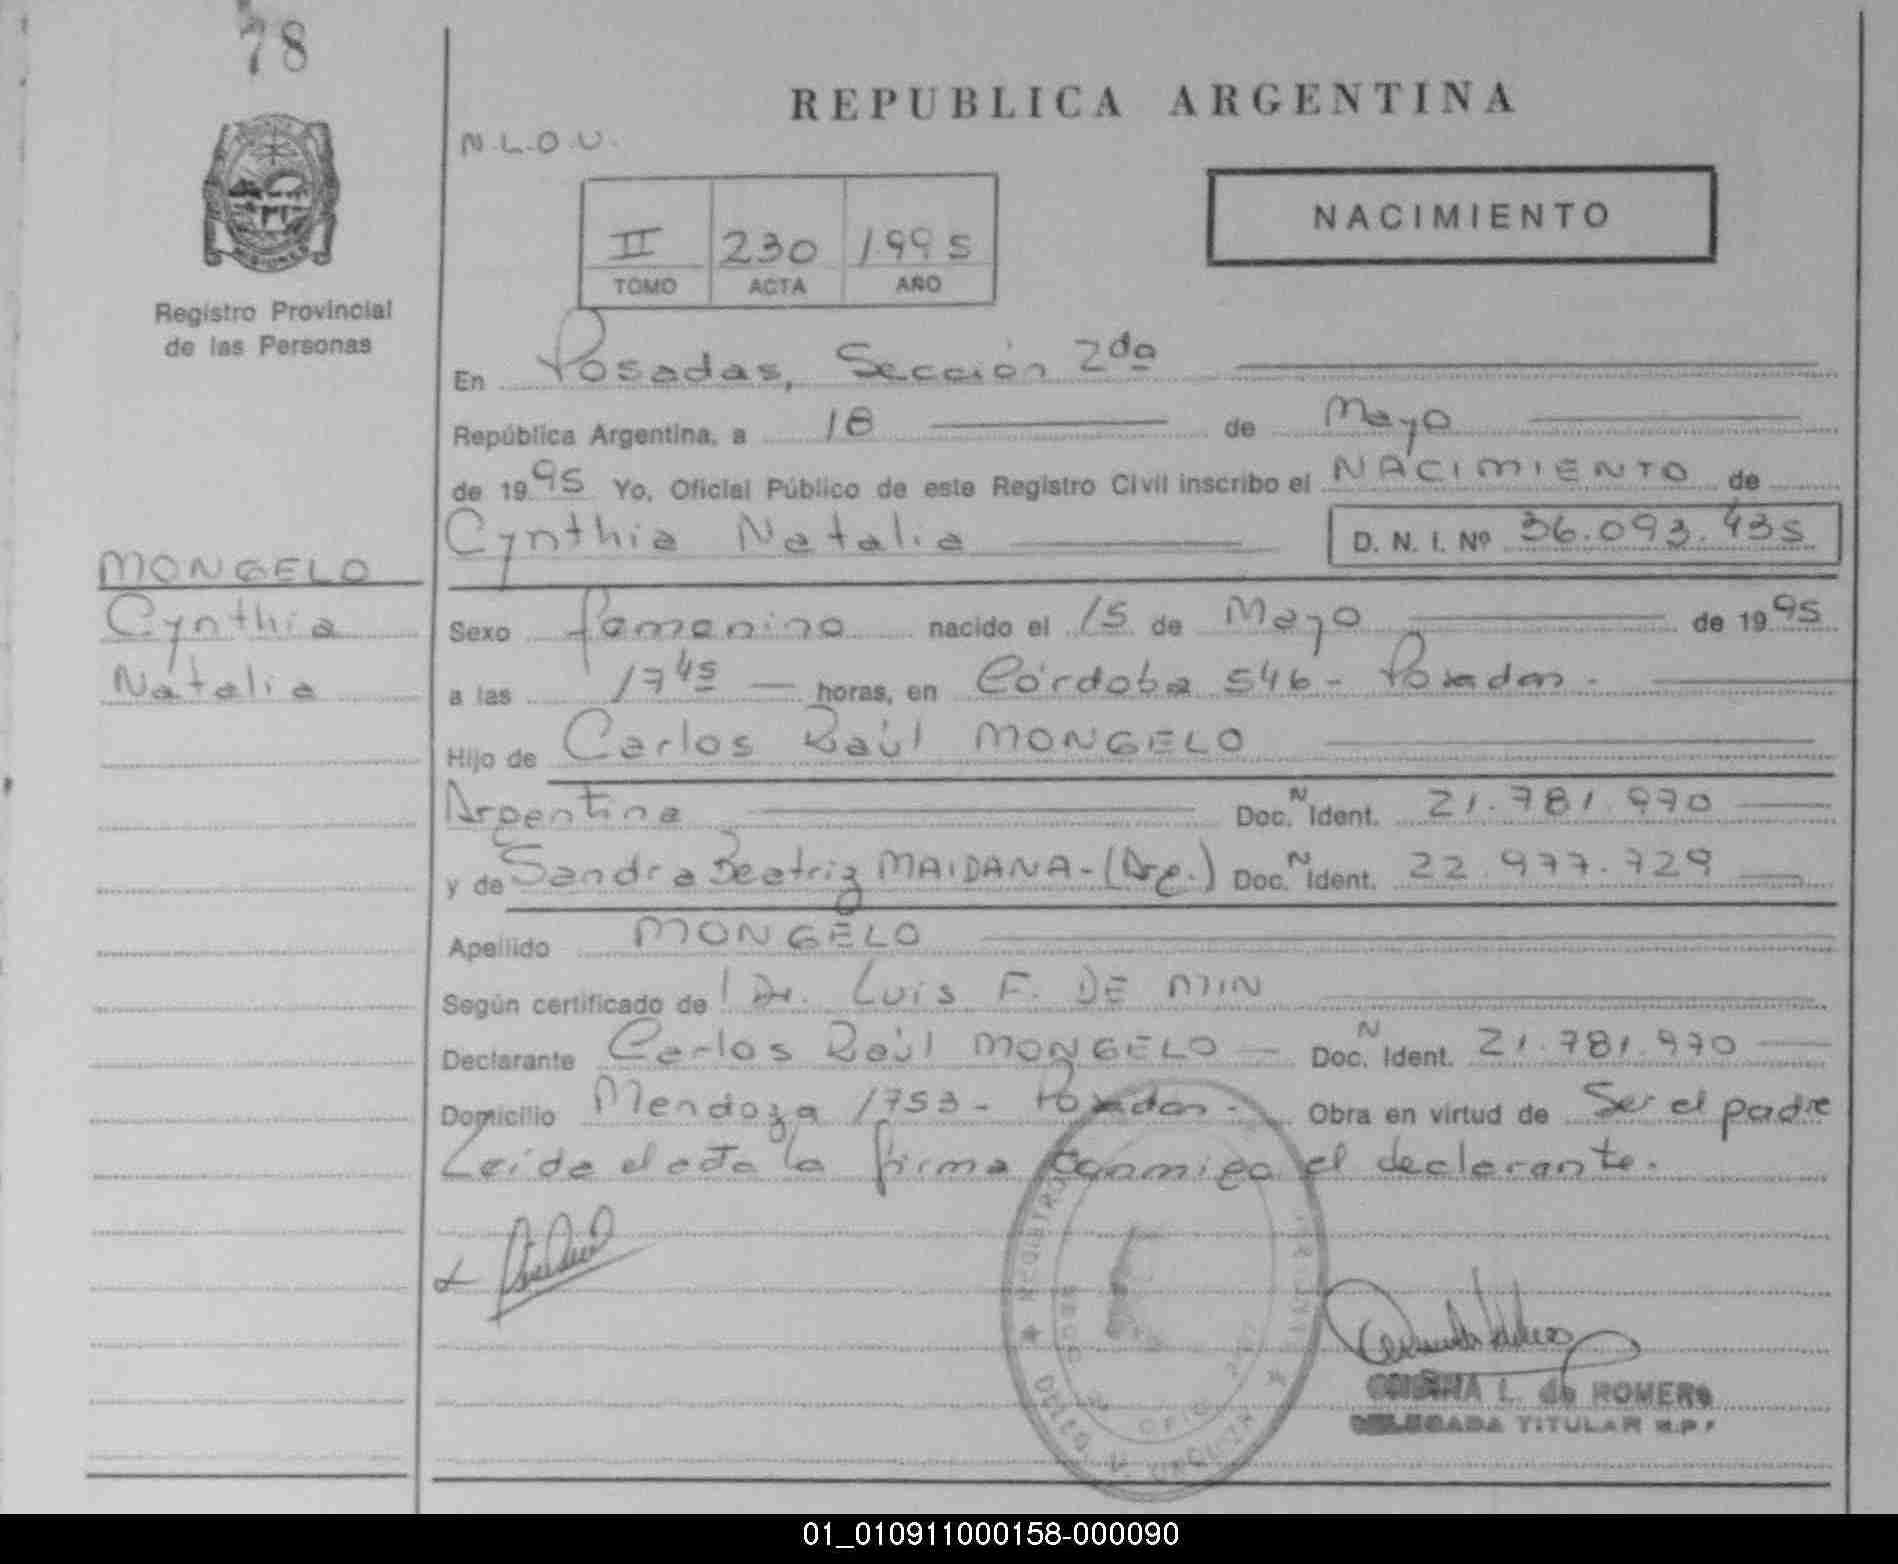 78
REPUBLICA ARGENTINA
N.L.O.U.
II 230 1.995
TOMO ACTA AÑO
NACIMIENTO
Registro Provincial
de las Personas
En Posadas, Sección 2da
República Argentina, a 18 de Mayo
de 1995 Yo, Oficial Público de este Registro Civil inscribo el NACIMIENTO de
Cynthia Natalia D. N. I. Nº 36.093.435
MONGELO
Cynthia
Natalia
Sexo femenino nacido el 15 de Mayo de 1995
a las 17 45 horas, en Córdoba 546 - Posadas.
Hijo de Carlos Raúl MONGELO
Argentina Doc. N Ident. 21.781.970
y de Sandra Beatriz MAIDANA - (Arg.) Doc. N Ident. 22.977.729
Apellido MONGELO
Según certificado de Dr. Luis F. DE MIN
Declarante Carlos Raúl MONGELO Doc. N Ident. 21.781.970
Domicilio Mendoza 1753 - Posadas. Obra en virtud de Ser el padre
Leída el acta la firma conmigo el declarante.
L. de ROMERO
DELEGADA TITULAR R.P.
01_010911000158-000090